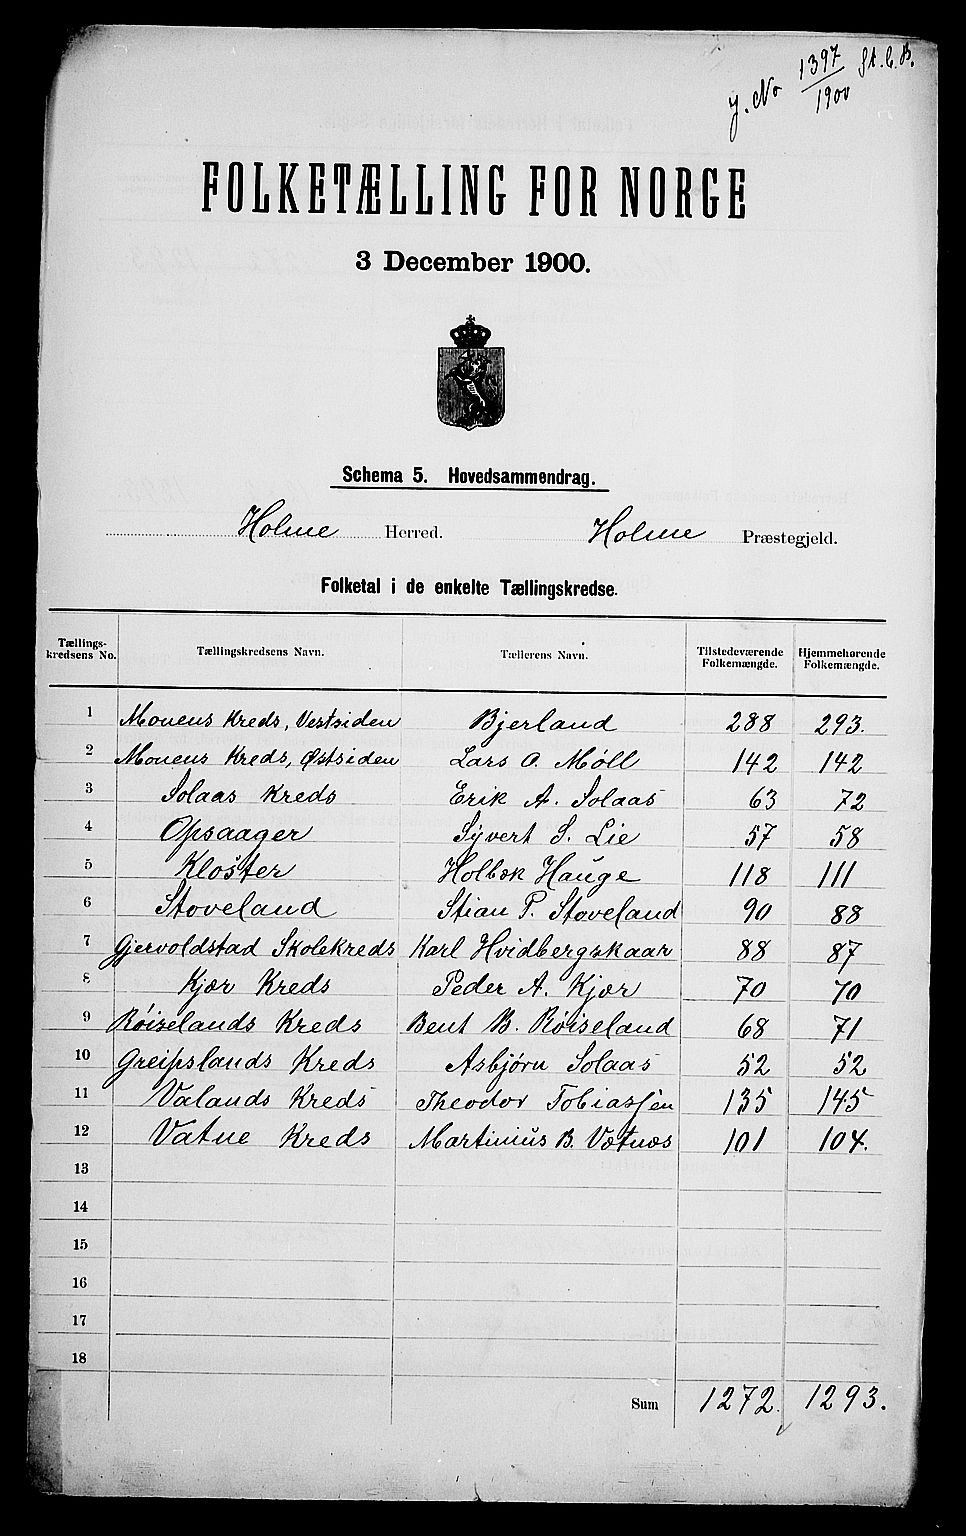 J. No 1397/1900 St. C. B.
FOLKETÆLLING FOR NORGE
3 December 1900.
Schema 5. Hovedsammendrag.
Holme Herred. Holme Præstegjeld.
Folketal i de enkelte Tællingskredse.
Tællingskredsens No. Tællingskredsens Navn. Tællerens Navn. Tilstedeværende Folkemængde. Hjemmehørende Folkemængde.
1 Monens Kreds, Vestsiden Bjerland 288 293.
2 Monens Kreds, Østsiden Lars O. Møll 142 142
3 Solaas Kreds Erik A. Solaas 63 72
4 Opsaager Syvert S. Lie 57 58
5 Kloster Holbæk Hauge 118 111
6 Stoveland Stian P. Stoveland 90 88
7 Gjervoldstad Skolekreds Karl Hvidbergskaar 88 87
8 Kjær Kreds Peder A. Kjær 70 70
9 Røiselands Kreds Bent B. Røiseland 68 71
10 Greipslands Kreds Asbjørn Solaas 52 52
11 Valands Kreds Theodor Tobiassen 135 145
12 Vatne Kreds Martinius B. Vatnæs 101 104.
13
14
15
16
17
18
Sum 1272. 1293.